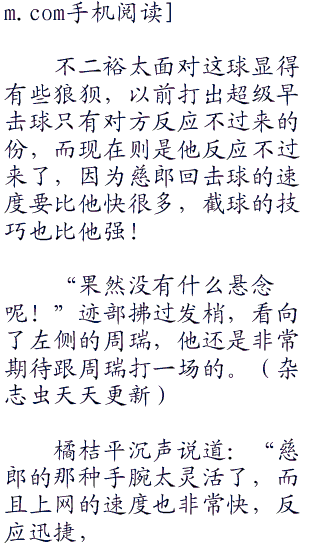 m.com手机阅读]
不二裕太面对这球显得
有些狼狈，以前打出超级早
击球只有对方反应不过来的
份，而现在则是他反应不过
来了，因为慈郎回击球的速
度要比他快很多，截球的技
巧也比他强！
“果然没有什么悬念
呢！”迹部拂过发梢，看向
了左侧的周瑞，他还是非常
期待跟周瑞打一场的。（杂
志虫天天更新）
橘桔平沉声说道：“慈
郎的那种手腕太灵活了，而
且上网的速度也非常快，反
应迅捷，